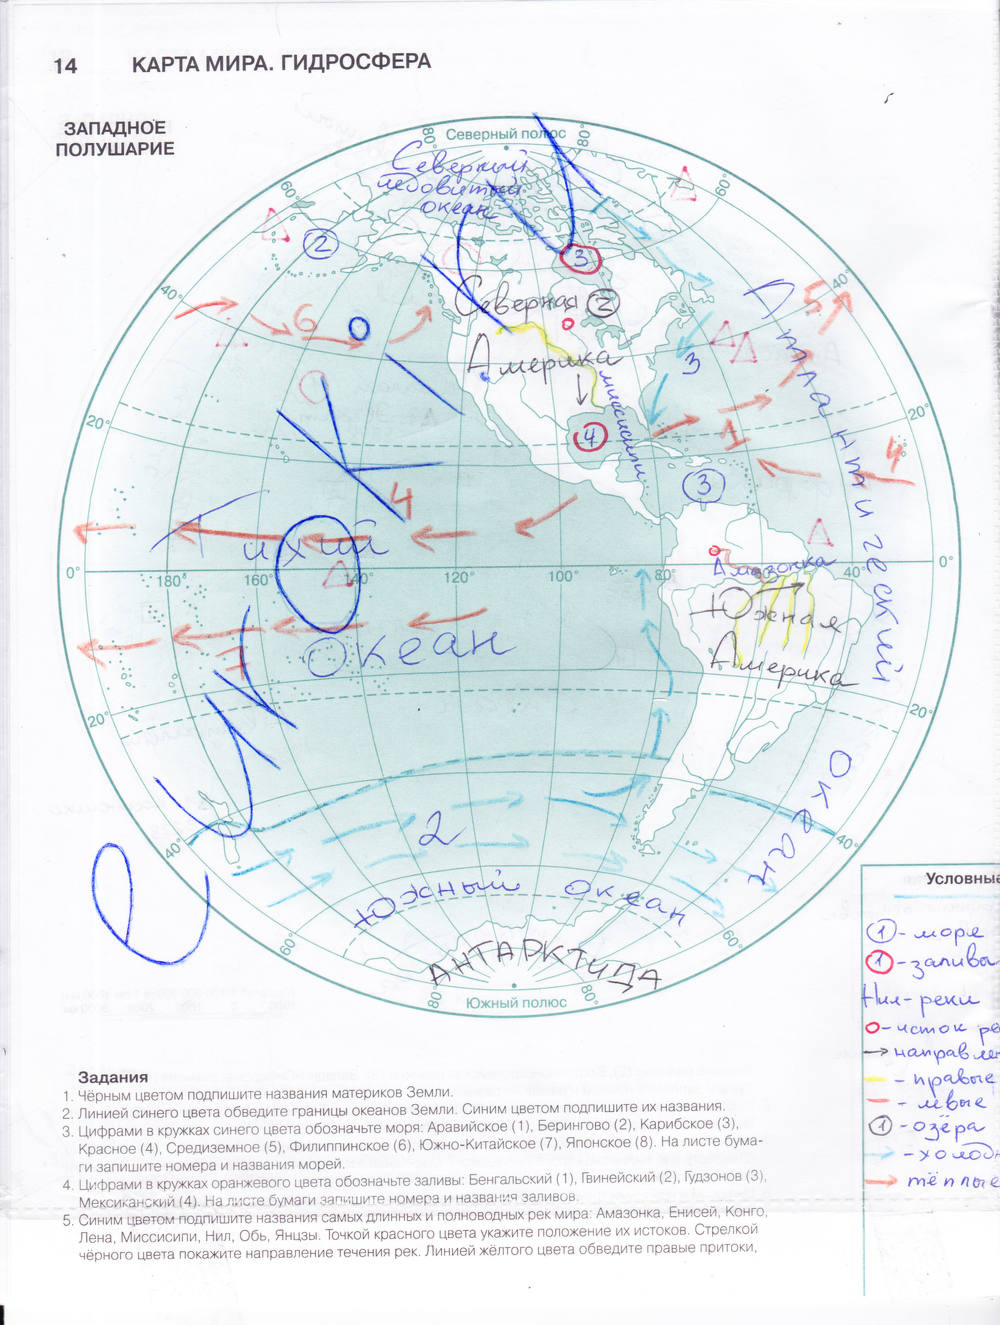 14 КАРТА МИРА. ГИДРОСФЕРА
ЗАПАДНОЕ
ПОЛУШАРИЕ
80° Северный полюс 80°
Северный
ледовитый
океан
60° 60°
2
3
40° 40°
5
6
Северная 2
Америка
Миссисипи
3
4
1
20° 20°
4
4
3
Тихий
океан
Атлантический
океан
0° 180° 160° 140° 120° 100° 80° 40° 0°
Амазонка
Южная
Америка
7
20° 20°
40° 40°
2
Южный океан
60° 60°
АНТАРКТИДА
80° Южный полюс 80°
Условные
1 - море
1 - заливы
Нил - реки
- исток
- правые
- левые
1 - озёра
- тёплые
Задания
1. Чёрным цветом подпишите названия материков Земли.
2. Линией синего цвета обведите границы океанов Земли. Синим цветом подпишите их названия.
3. Цифрами в кружках синего цвета обозначьте моря: Аравийское (1), Берингово (2), Карибское (3),
Красное (4), Средиземное (5), Филиппинское (6), Южно-Китайское (7), Японское (8). На листе бума-
ги запишите номера и названия морей.
4. Цифрами в кружках оранжевого цвета обозначьте заливы: Бенгальский (1), Гвинейский (2), Гудзонов (3),
Мексиканский (4). На листе бумаги запишите номера и названия заливов.
5. Синим цветом подпишите названия самых длинных и полноводных рек мира: Амазонка, Енисей, Конго,
Лена, Миссисипи, Нил, Обь, Янцзы. Точкой красного цвета укажите положение их истоков. Стрелкой
чёрного цвета покажите направление течения рек. Линией жёлтого цвета обведите правые притоки,